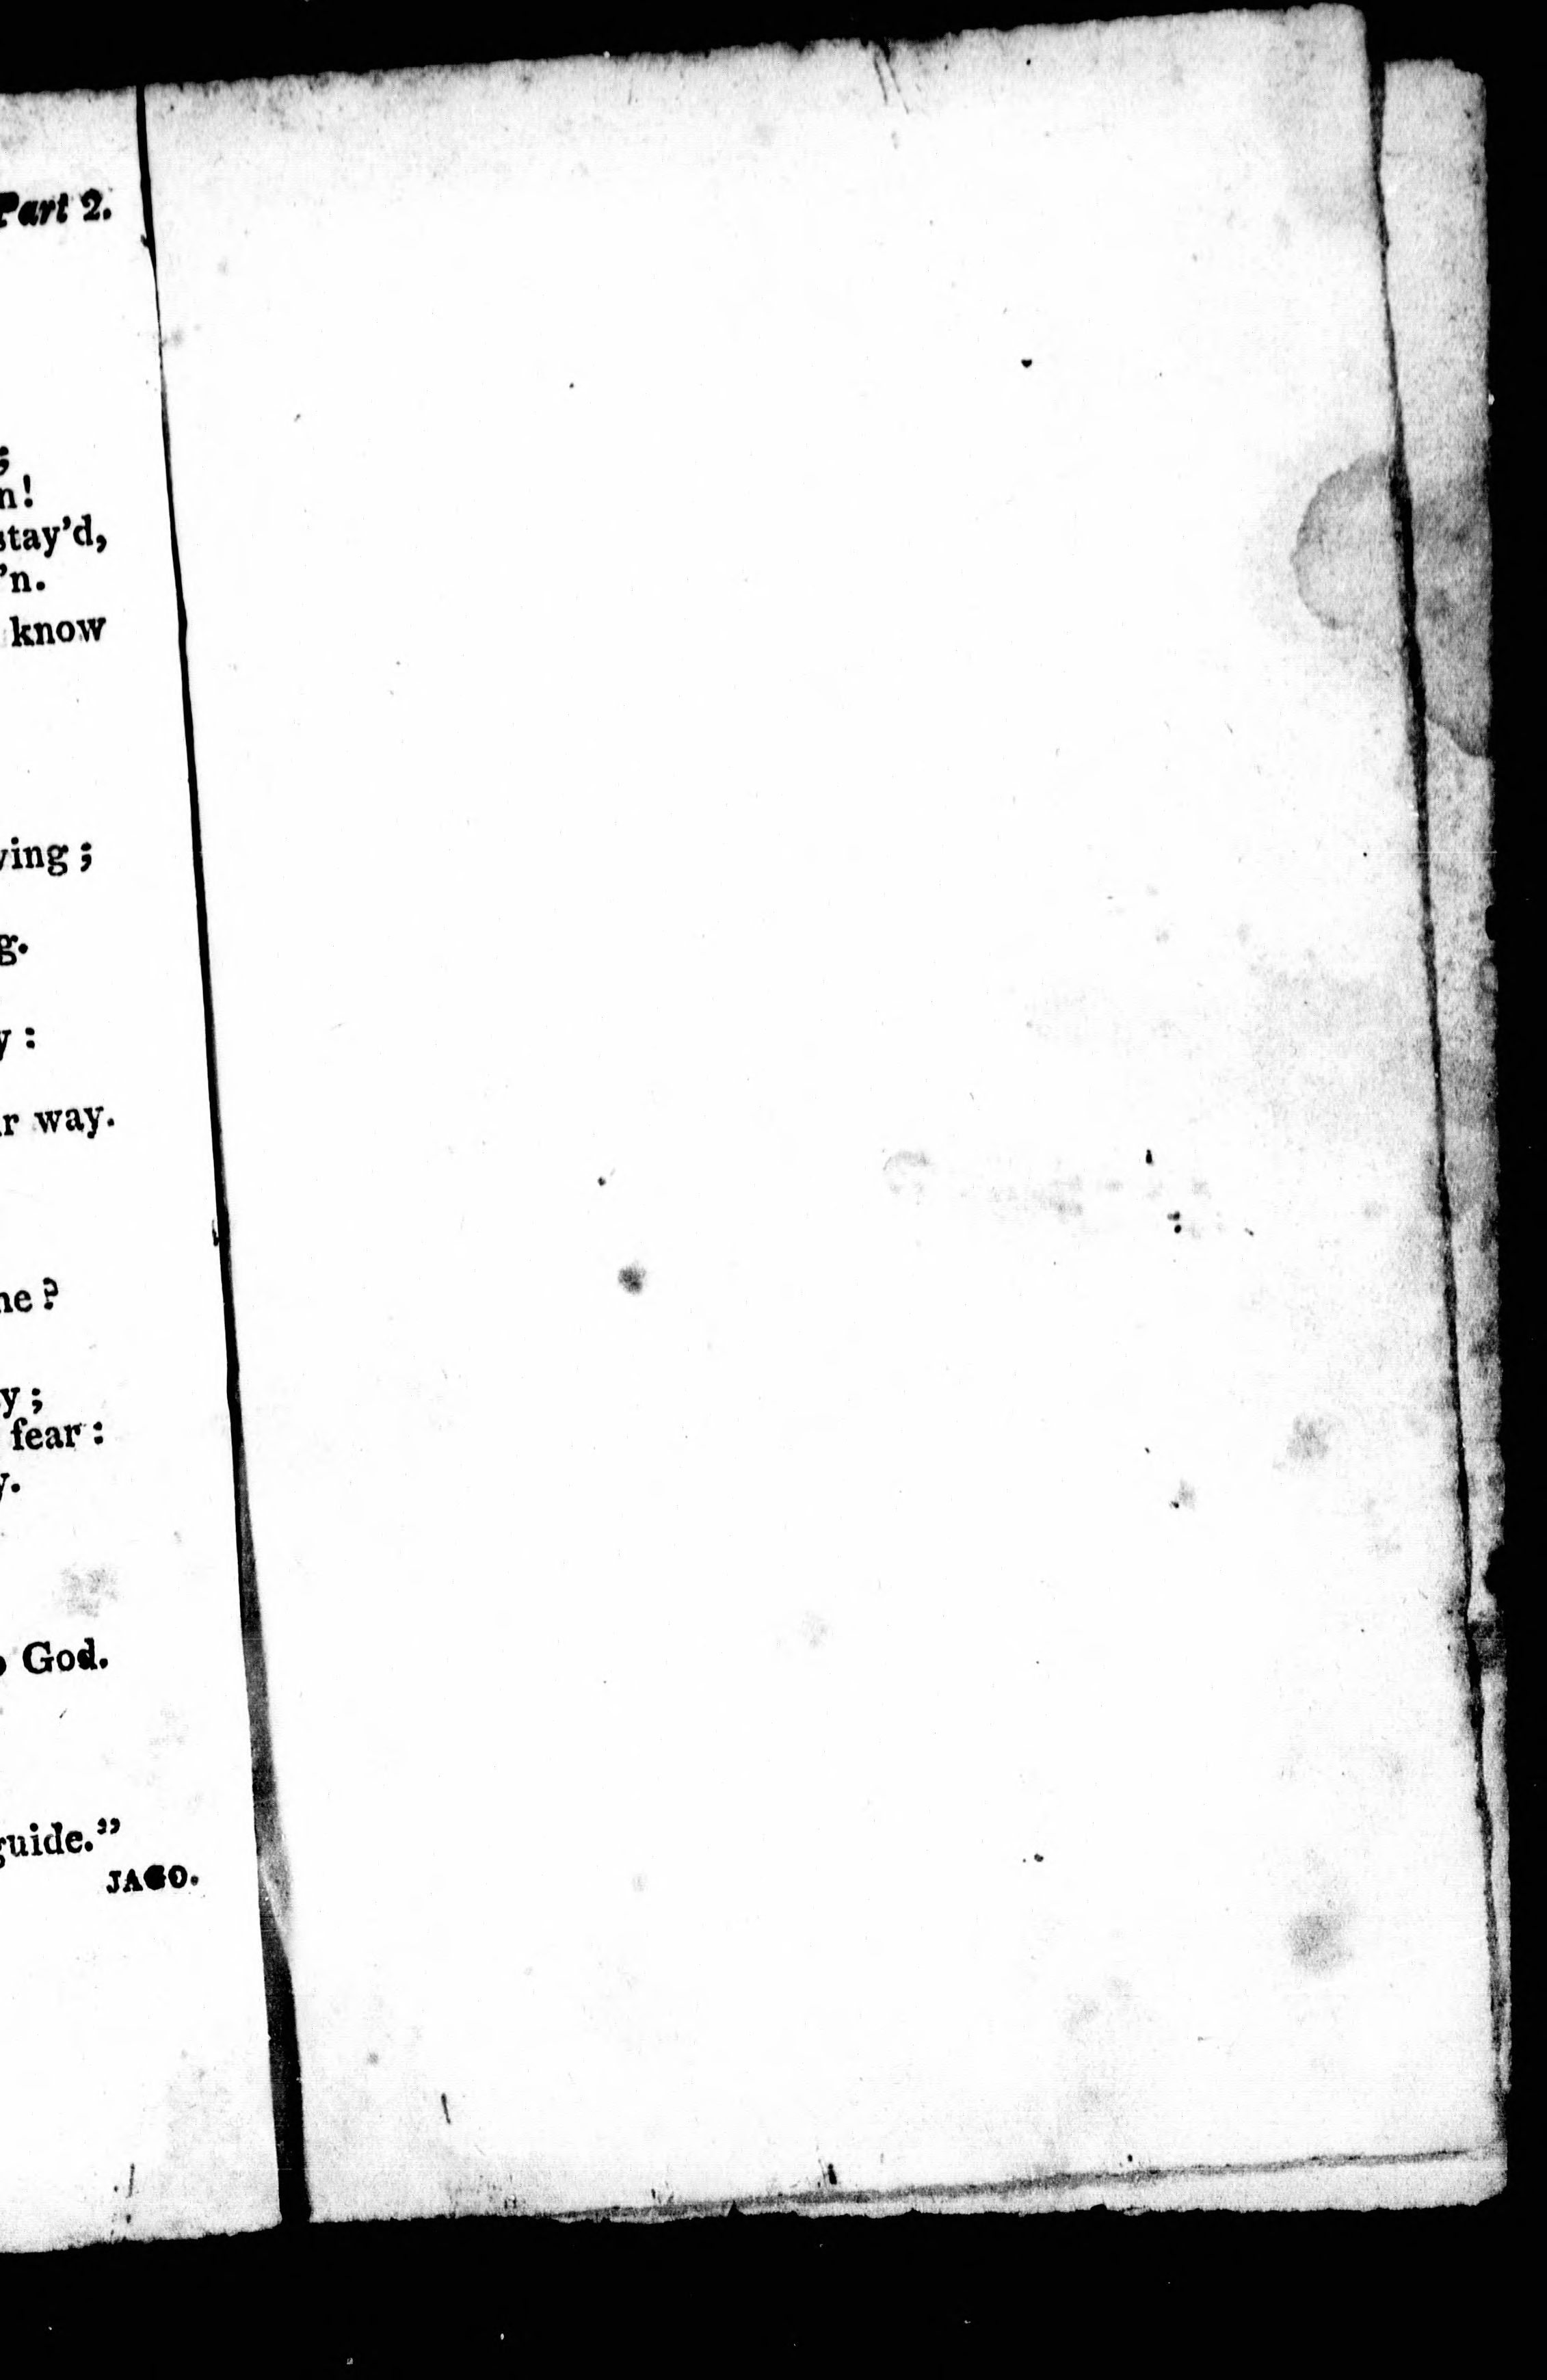 Part 2.
;
n!
stay'd,
'n.
know
ving;
g.
y:
r way.
he?
y;
fear:
y.
God.
guide."
JAGO.